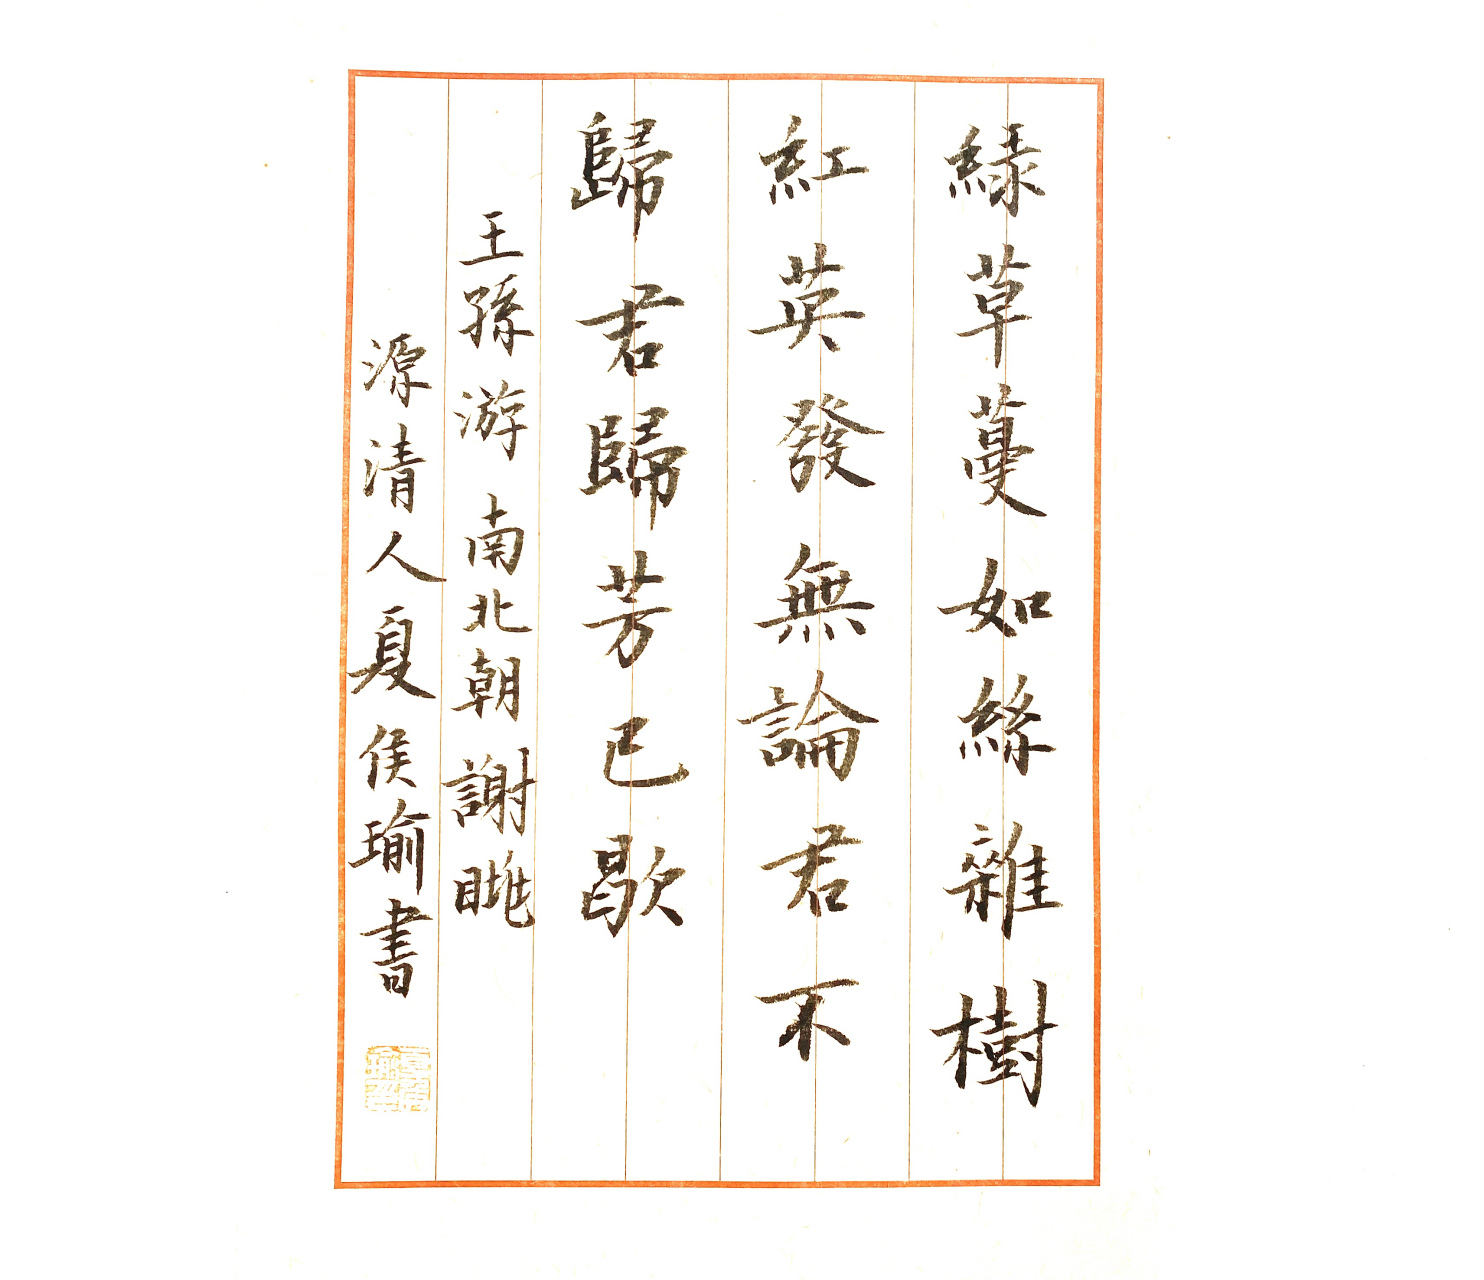 綠草蔓如絲雜樹
紅英發無論君不
歸君歸芳已歇
王孫游 南北朝 謝眺
源清人夏侯瑜書